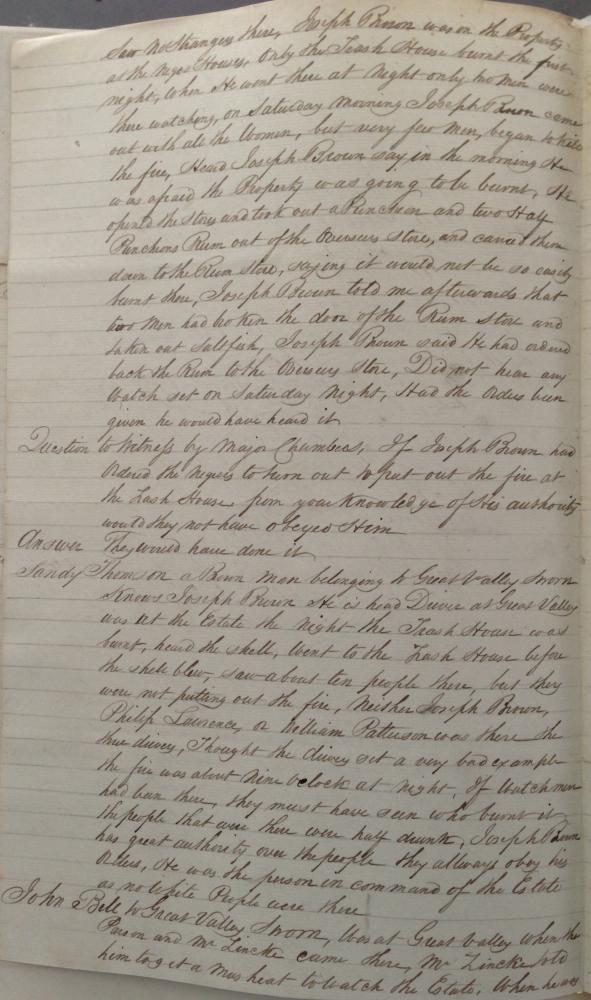 Saw no Strangers there, Joseph Brown was on the Property
at the Negro Houses, only the Trash House burnt the first
night, when He went there at night only two men were
there watching, on Saturday morning Joseph Brown came
out with all the Women, but very few Men, began to
the fire, Heard Joseph Brown say in the morning He
was afraid the Property was going to be burnt, He
opened the Store and took out a Puncheon and two Half
Puncheons Rum out of the Overseers Store, and caried them
down to the Rum Store, saying it would not be so easily
burnt there, Joseph Brown told me afterwards that
two Men had broken the door of the Rum Store and
taken out Saltfish, Joseph Brown said He had ordered
back the Rum to the Overseers Store, Did not hear any
Watch set on Saturday Night, Had the Orders been
given he would have heard it
Question to Witness by Major Chambers, If Joseph Brown had
Ordered the Negroes to turn out to put out the fire at
the Trash House, from your Knowledge of His authority
would they not have obeyed Him
Answer They would have done it
Sandy Thomson a Brown man belonging to Great Valley Sworn
Knows Joseph Brown He is head Driver at Great Valley
was at the Estate the Night the Trash House was
burnt, heard the shell, Went to the Trash House before
the shell blew, saw about ten people there, but they
were not putting out the fire, Neither Joseph Brown,
Philip Lawrence, or William Patterson was there the
three drivers, Thought the drivers set a very bad example
the fire was about Nine oClock at Night, If Watchmen
had been there, they must have seen who burnt it
the people that were there were half drunk, Joseph Brown
has great authority over the people they allways obey his
Orders, He was the person in command of the Estate
as no White People were there
John Bell to Great Valley Sworn, Was at Great Valley when the
Parson and Mr Lincke came there, Mr Lincke told
him to get a Musheat to Watch the Estate, When he was